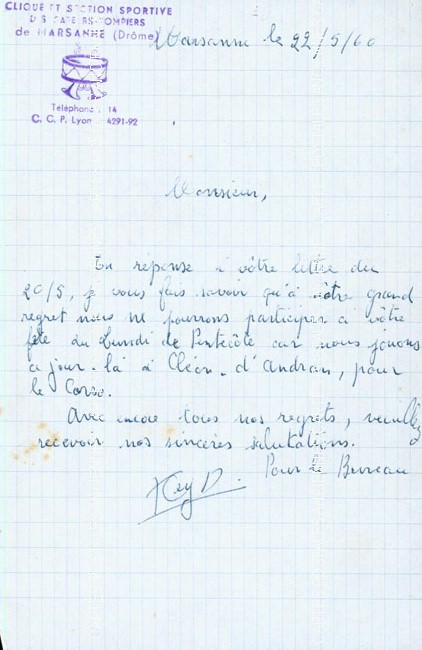 CLIQUE ET SECTION SPORTIVE
DES SAPEURS-POMPIERS
de MARSANNE (Drôme)
Téléphone : 14
C. C. P. Lyon 4291-92
Marsanne le 22/5/60
Monsieur,
En réponse à vôtre lettre du
20/5, je vous fais savoir qu'à nôtre grand
regret nous ne pourrons participer à vôtre
fête du Lundi de Pentecôte car nous jouons
ce jour-là à Cléon-d'Andran, pour
le Corso.
Avec encore tous nos regrets, veuillez
recevoir nos sincères salutations.
Pour le Bureau